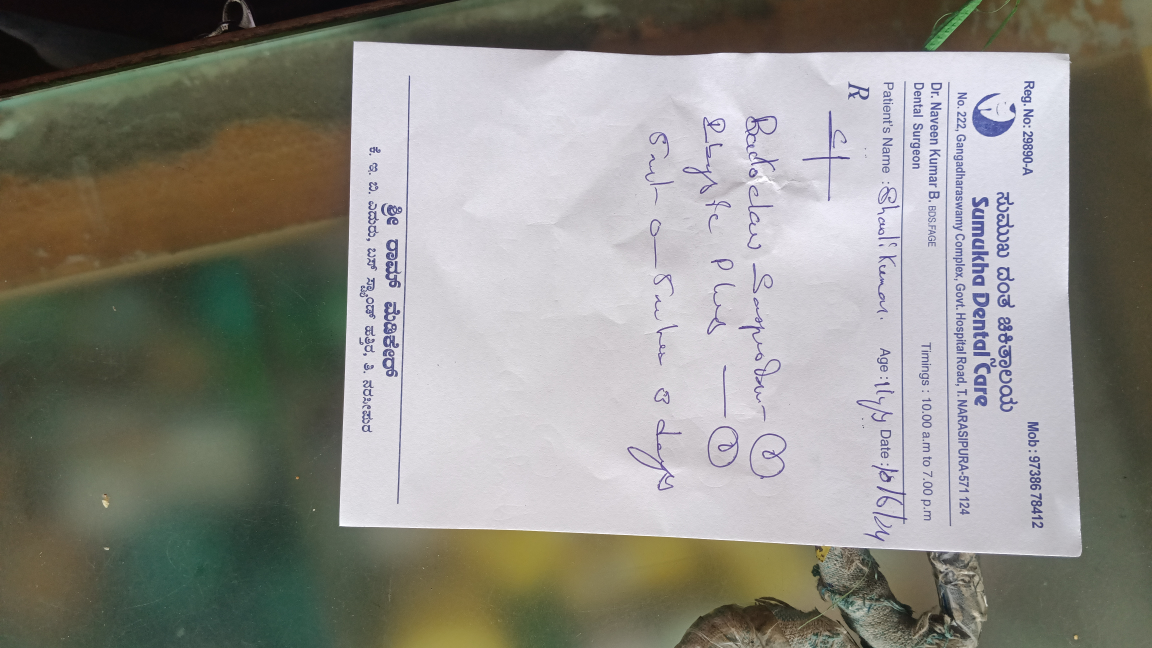 Reg. No: 29890-A Mob : 97386 78412
ಸುಮುಖ ದಂತ ಚಿಕಿತ್ಸಾಲಯ
Sumukha Dental Care
No. 222, Gangadharaswamy Complex, Govt. Hospital Road, T. NARASIPURA-571 124
Dr. Naveen Kumar B. BDS.FAGE Timings : 10.00 a.m to 7.00 p.m
Dental Surgeon
Patient's Name : Kumar. Age : Date : /6/24
R
Plus —
5ml — 5ml 3 days
ಶ್ರೀ ರಾಮ್ ಮೆಡಿಕೇರ್
ಕೆ. ಇ. ಬಿ. ಎದುರು, ಬಸ್ ಸ್ಟ್ಯಾಂಡ್ ಹತ್ತಿರ, ತಿ. ನರಸೀಪುರ